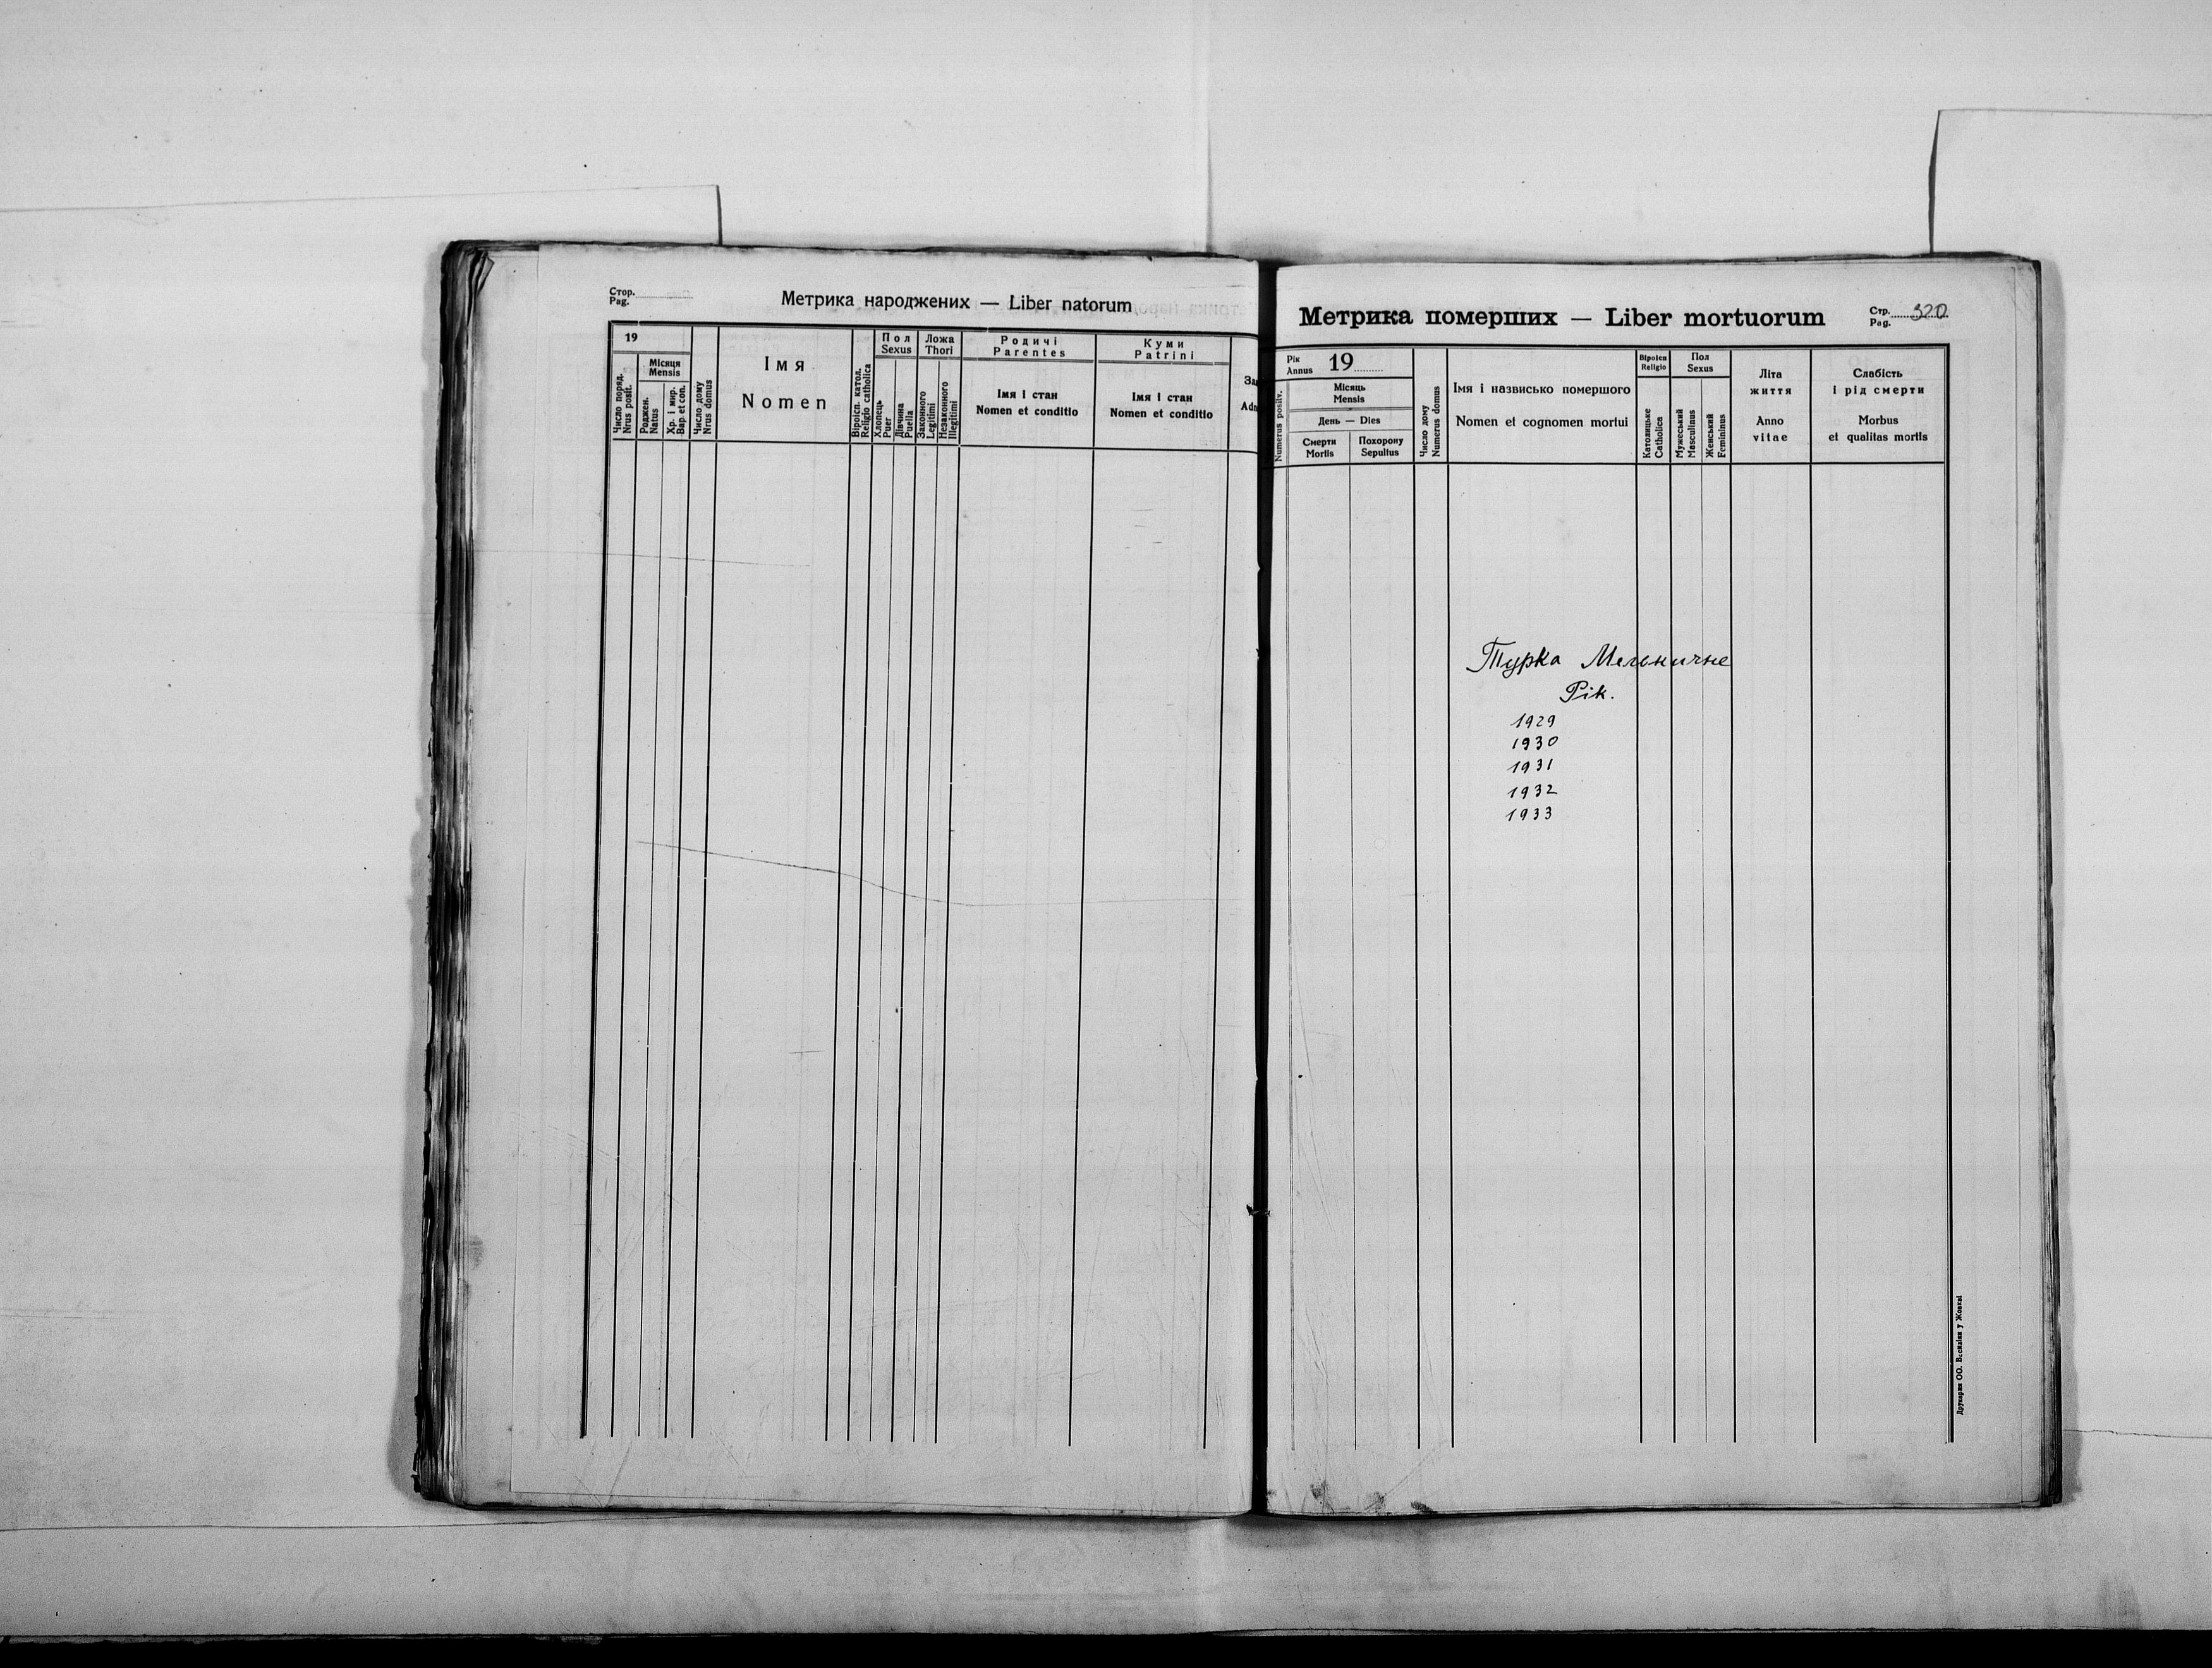 Стор.
Pag.
Метрика народжених — Liber natorum
19
Місяця
Mensis
Число поряд.
Nrus posit.
Роджен.
Natus
Хр. і мир.
Bap. et con.
Число дому
Nrus domus
Імя
Nomen
Віроісп. катол.
Religio catholica
Пол
Sexus
Хлопець
Puer
Дівчина
Puella
Ложа
Thori
Законного
Legitimi
Незаконного
Illegitimi
Родичі
Parentes
Імя і стан
Nomen et conditio
Куми
Patrini
Імя і стан
Nomen et conditio
Метрика померших — Liber mortuorum
Стр. 320
Pag.
Рік
Annus 19
Numerus positv.
Місяць
Mensis
День — Dies
Смерти
Mortis
Похорону
Sepultus
Число дому
Numerus domus
Імя і назвисько помершого
Nomen et cognomen mortui
Віроісп
Religio
Католицьке
Catholica
Пол
Sexus
Мужеський
Masculinus
Женський
Femininus
Літа
життя
Anno
vitae
Слабість
і рід смерти
Morbus
et qualitas mortis
Турка Мельничне
Рік.
1929
1930
1931
1932
1933
Друкарня ОО. Василіян у Жовкві